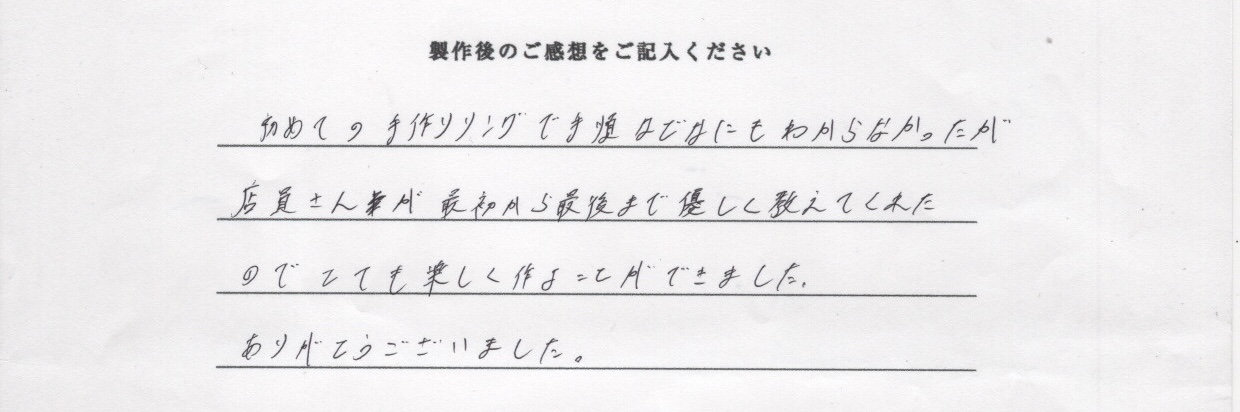 製作後のご感想をご記入ください
初めての手作りリングで手順などなにもわからなかったが
店員さんが最初から最後まで優しく教えてくれた
のでとても楽しく作ることができました。
ありがとうございました。